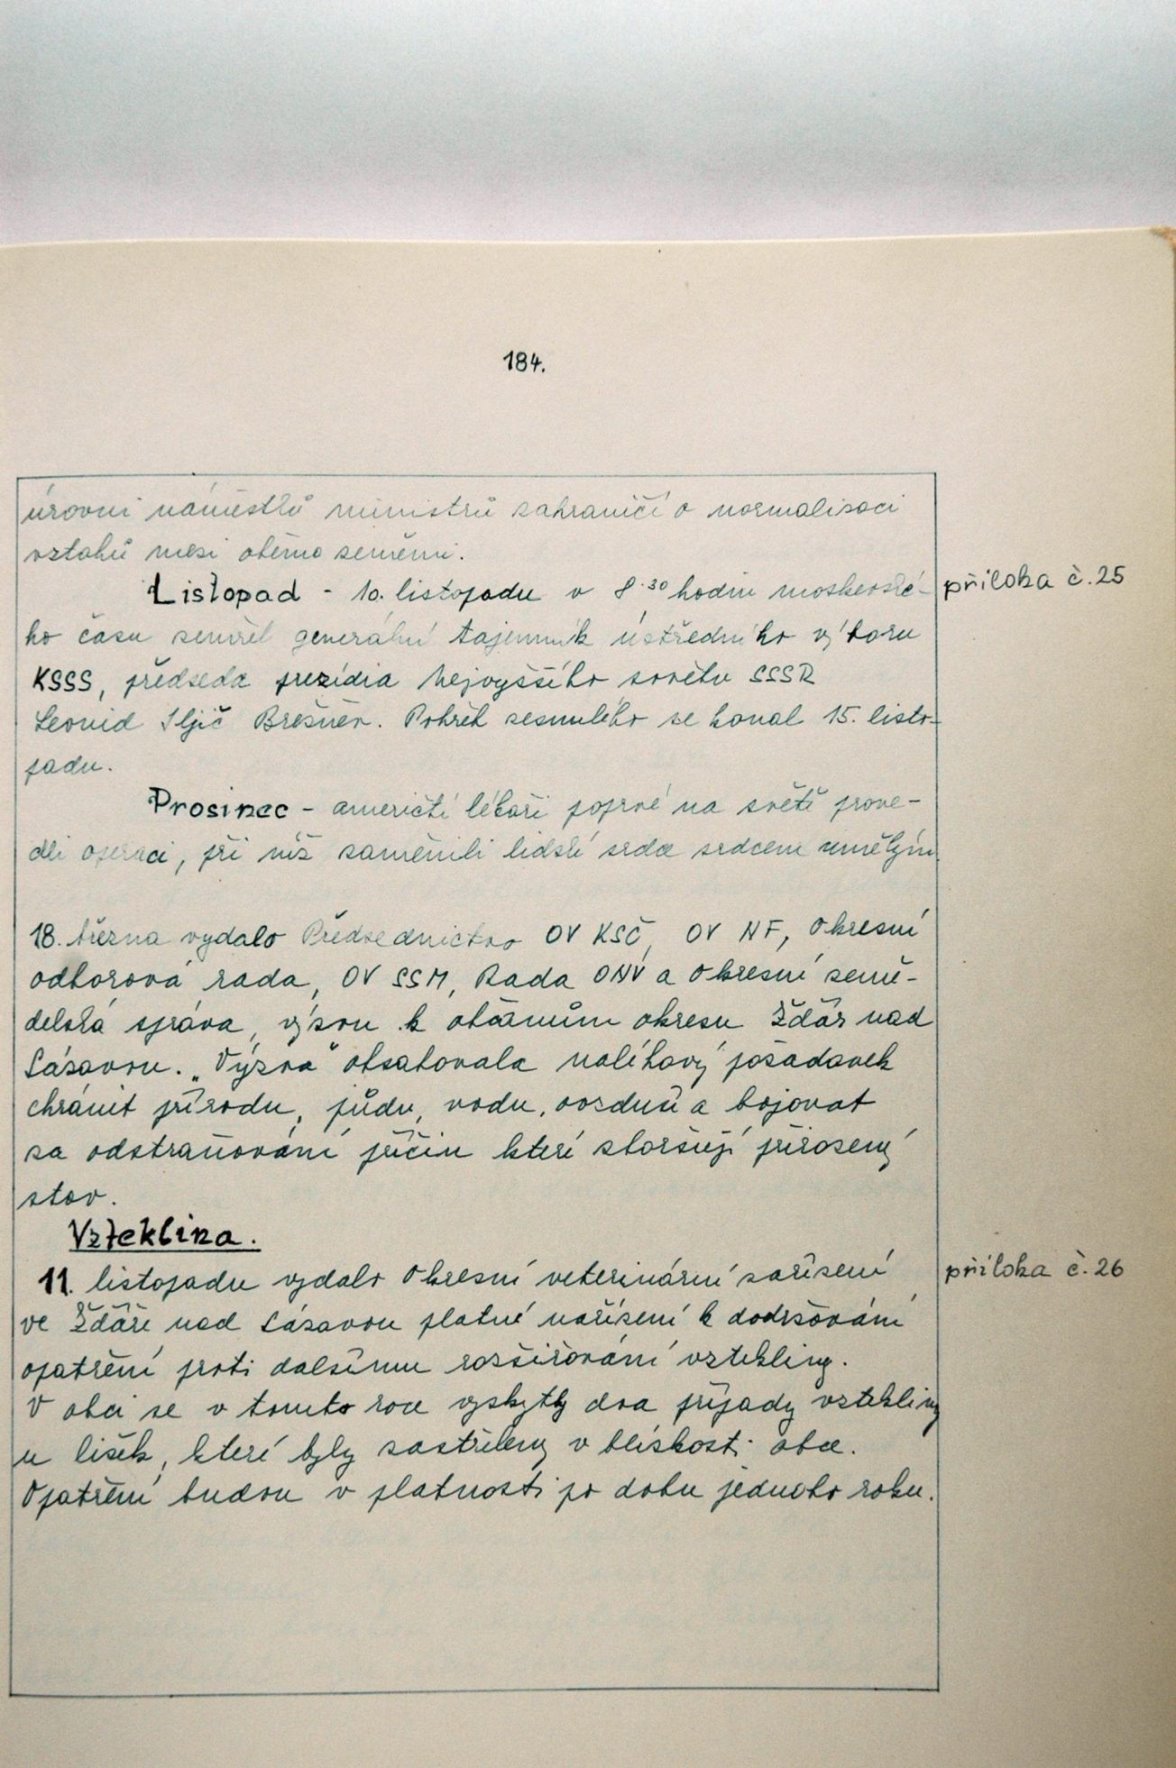 184.
úrovni náměstků ministrů zahraničí o normalizaci
vztahů mezi oběma zeměmi.
Listopad - 10. listopadu v 8.30 hodin moskevské-
příloha č. 25
ho času zemřel generální tajemník ústředního výboru
KSSS, předseda prezídia Nejvyššího sovětu SSSR
Leonid Iljič Brežněv. Pohřeb zesnulého se konal 15. listo-
padu.
Prosinec - američtí lékaři poprvé na světě prove-
dli operaci, při níž zaměnili lidské srdce srdcem umělým.
18. března vydalo Předsednictvo OV KSČ, OV NF, Okresní
odborová rada, OV SSM, Rada ONV a Okresní země-
delská správa, výzvu k občanům okresu Žďár nad
Sázavou. „Výzva“ obsahovala naléhavý požadavek
chránit přírodu, půdu, vodu, ovzduší a bojovat
za odstraňování příčin které zhoršují přirozený
stav.
Vzteklina.
11. listopadu vydalo Okresní veterinární zařízení
příloha č. 26
ve Žďáře nad Sázavou platné nařízení k dodržování
opatření proti dalšímu rozšiřování vztekliny.
V obci se v tomto roce vyskytly dva případy vztekliny
u lišek, které byly zastřeleny v blízkosti obce.
Opatření budou v platnosti po dobu jednoho roku.